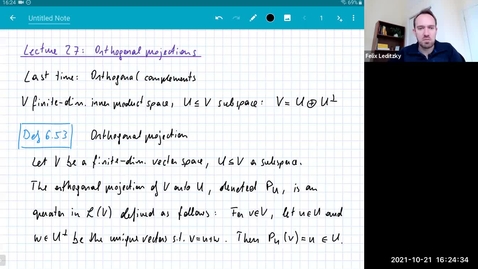 16:24
82%
Untitled Note
Felix Leditzky
Lecture 27: Orthogonal projections
Last time: Orthogonal complements
V finite-dim. inner product space, U ≤ V subspace: V = U ⊕ U⊥
Def 6.53 Orthogonal projection
Let V be a finite-dim. vector space, U ≤ V a subspace.
The orthogonal projection of V onto U, denoted P_U, is an
operator in L(V) defined as follows: For v∈V, let u∈U and
w∈U⊥ be the unique vectors s.t. v=u+w. Then P_U(v)=u ∈ U.
2021-10-21 16:24:34